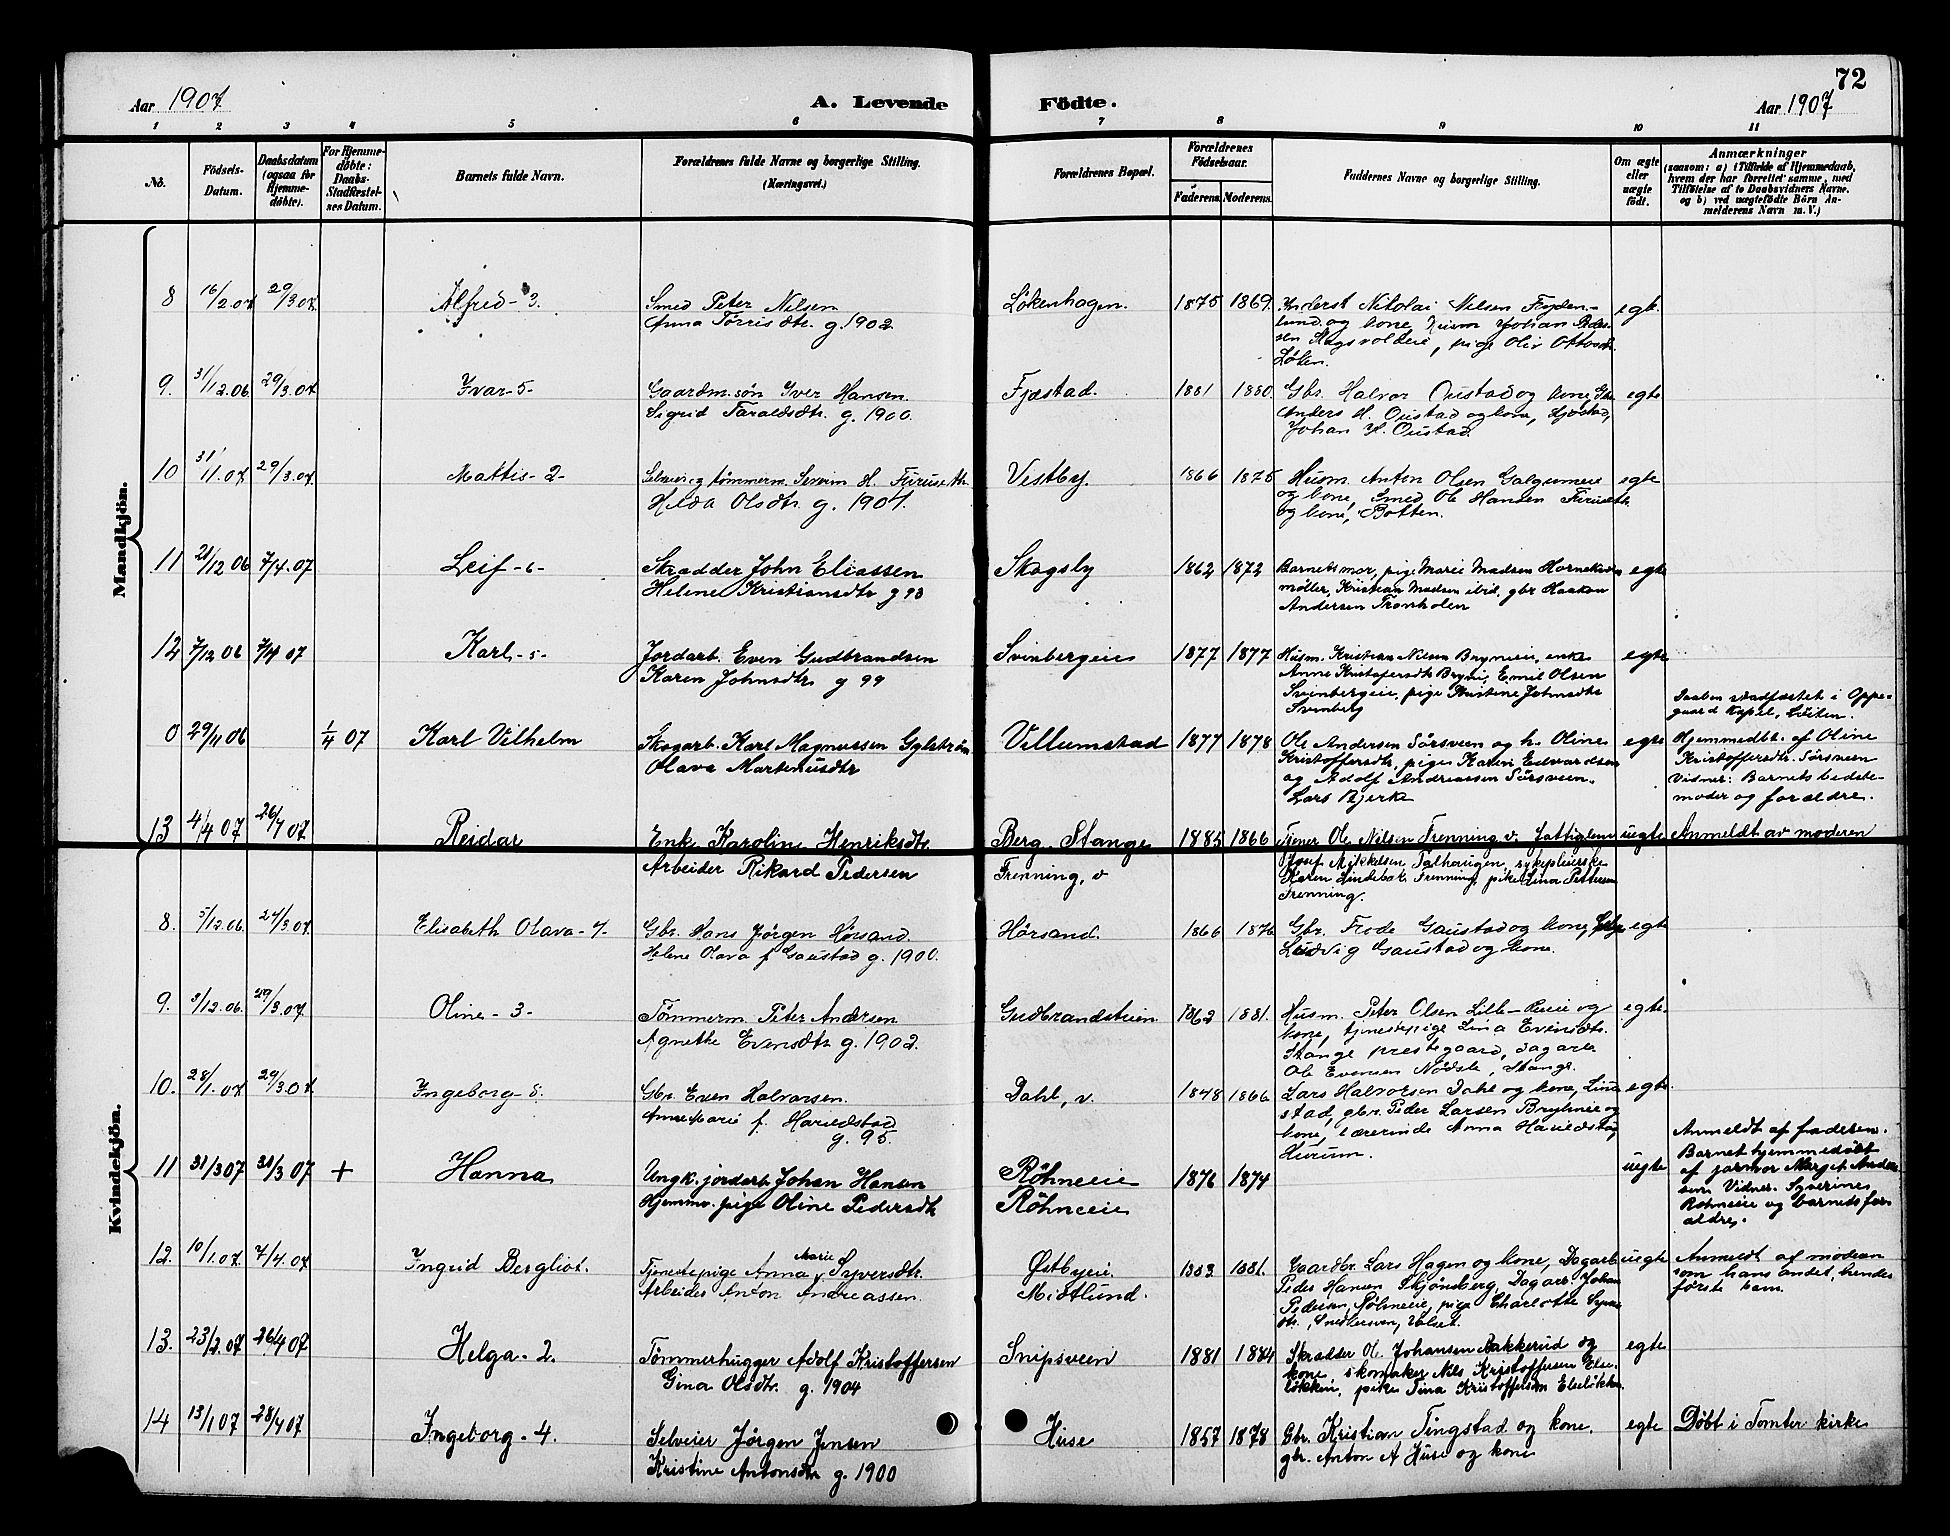 72
Aar 1907
A. Levende Födte.
Aar 1907
1 2 3 4 5 6 7 8 9 10 11
No.
Födsels-Datum.
Daabsdatum (ogsaa for Hjemmedöbte).
For Hjemmedöbte: Daabs-Stadfæstelses Datum.
Barnets fulde Navn.
Forældrenes fulde Navne og borgerlige Stilling.
(Næringsvei.)
Forældrenes Bopæl.
Forældrenes Födselsaar.
Faderens. Moderens.
Faddernes Navne og borgerlige Stilling.
Om ægte eller uægte födt.
Anmærkninger
(saasom: a) i Tilfælde af Hjemmedaab,
hvem der har forrettet samme, med
Tilföielse af to Daabsvidners Navne.
og b) ved uægtefödte Börn An-
melderens Navn m. V.)
Mandkjön.
8 16/2.07 29/3.07 Alfred-3. Smed Peter Nilsen Løkenhagen. 1875 1869. Inderst Nikolai Nilsen Fryden-
Anna Tørrisdtr. g. 1902. lund og kone, Johan Peder-
sen Skogsvoldeie, pige Oliv Ottosdtr.
Løken. egte.
9. 31/12.06. 29/3.07 Ivar-5- Gaardm.søn Iver Hansen. Fjæstad. 1881 1880. Gbr. Halvor Oustad og kone, Gbr. egte
Sigrid Taraldsdtr. g. 1900. Anders H. Oustad og kone, Fjæstad,
Johan H. Oustad.
10 31/1.07. 29/3.07. Mattis-2- Selveier og tømmerm. Severin H. Furuseth. Vestby. 1866 1875 Husm. Anton Olsen Galgumeie egte
Helda Olsdtr. g. 1901. og kone, Smed Ole Hansen Furuseth
og kone, Botten.
11 21/12 06 7/4.07 Leif-6- Skrædder John Eliassen Skogsby 1862 1872 Barnets mor, pige Marie Madsen Hornekven egte
Helene Kristiansdtr g 93 møller, Kristian Madsen ibid, gbr Haakon
Andersen Tronholen
12 7/12 06 7/4 07 Karl-5- Jordarb. Even Gudbrandsen Svenbergeie 1877 1877 Husm. Kristian Nilsen Bryneeie, enke egte
Karen Johnsdtr g 99 Anne Kristofersdtr Bryni, Emil Olsen
Svenbergeie, pige Kristine Johnsdtr
Svenberg
0 29/11 06 1/4 07 Karl Vilhelm Skogarb. Karl Magnussen Gylstrøm Villumstad 1877 1878 Ole Andersen Sørsveen og h. Oline egte
Olava Martinusdtr Kristoffersdtr, pige Karen Edvardsen
og Adolf Andreassen Sørsveen.
Lars Bjerke
Daaben stadfæstet i Oppe-
gaard Kapel, Løiten.
Hjemmedbt. af Oline
Kristoffersdtr. Sørsveen
Vidner: Barnets bedste-
moder og forældre.
13 4/4 07 26/7 07 Reidar Enke Karoline Henriksdtr. Berg, Stange 1885 1866 Fører Ole Nilsen Frenning v. fattiglem uegte Anmeldt av moderen
Arbeider Rikard Pedersen Frenning, v Josef Mikkelsen Dalhaugen, sykepleierske
Karen Lindebæk Frenning, pike Lina Pettersen
Frenning.
Kvindekjön.
8. 5/12.06. 24/3.07 Elisabeth Olava-4- Gbr. Hans Jørgen Hørsand. Hørsand. 1866 1876 Gbr. Frode Gaustad og kone, Gbr egte
Helene Olava f. Gaustad g. 1900. Ludvig Gaustad og kone.
9. 3/12.06. 29/3.07 Oline-3- Tømmerm. Peter Andersen Gudbrandsteien 1862 1881. Husm. Peter Olsen Lille-Rueie og egte.
Agnethe Evensdtr. g. 1902. kone, tjenestepige Lina Evensdtr.
Stange prestegaard, Dagarb.
Ole Evensen Nødsle, Stange.
10. 28/1.07 29/3.07 Ingeborg-8. Gbr. Even Halvorsen. Dahl, v. 1848 1866 Lars Halvorsen Dahl og kone, egte.
Anne Marie f. Harildstad stad, gbr. Peder Larsen Bryhneie og
g. 95. kone, Lærerinde Anna Harildstad,
Hurum.
11 31/3 07 31/3 07 + Hanna Ungk. jordarb. Johan Hansen Röhneeie 1876 1874 uegte
Hjemmev. pige Oline Pedersdtr Röhneeie
Anmeldt af faderen.
Barnet hjemmedøbt
af jormor Marget Ander-
sen Vidner. Syverine
Røhneeie og barnets for-
ældre.
12. 10/1.07. 7/4.07 Ingrid Bergliot. Tjenestepige Anna Marie Syversdtr. Østbyeie. 1883 1881. Gaardbr. Lars Hagen og kone, Dagarb. uegte Anmeldt af moderen
Arbeider Anton Andreassen. Midtlund. Peder Hansen Skjønsberg, Dagarb. Johan som hans andet, hendes
Pedersen, Røhneeie, pige Charlotte Syvers- første barn.
dtr, Snedkersven, Valset.
13. 23/2.07 26/4 07 Helga-2. Tømmerhugger Adolf Kristoffersen Snipsveen 1881 1884 Skrædder Ole Johansen Bakkerud og egte
Gina Olsdtr. g. 1904 kone, skomaker Nils Kristoffersen Else-
løkken, pike Tina Kristoffersen Elseløkken.
14 13/1 07 28/4 07 Ingeborg-4. Selveier Jørgen Jensen Huse 1857 1878 Gbr. Kristian Tingstad og kone. egte Döbt i Tomter kirke
Kristine Antonsdtr g. 1900 gbr. Anton A Huse og kone